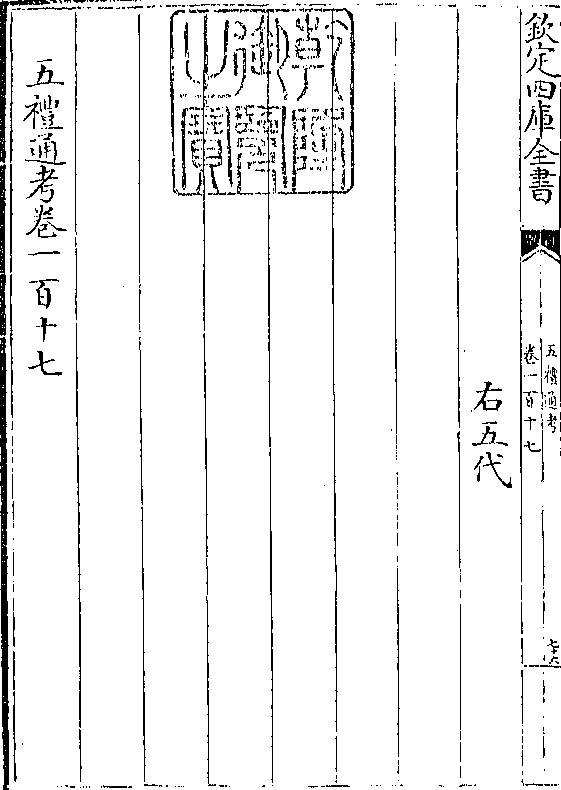 欽定四庫全書
五禮通考
卷一百十七
七十六
右五代
乾隆御覽之寶
五禮通考卷一百十七